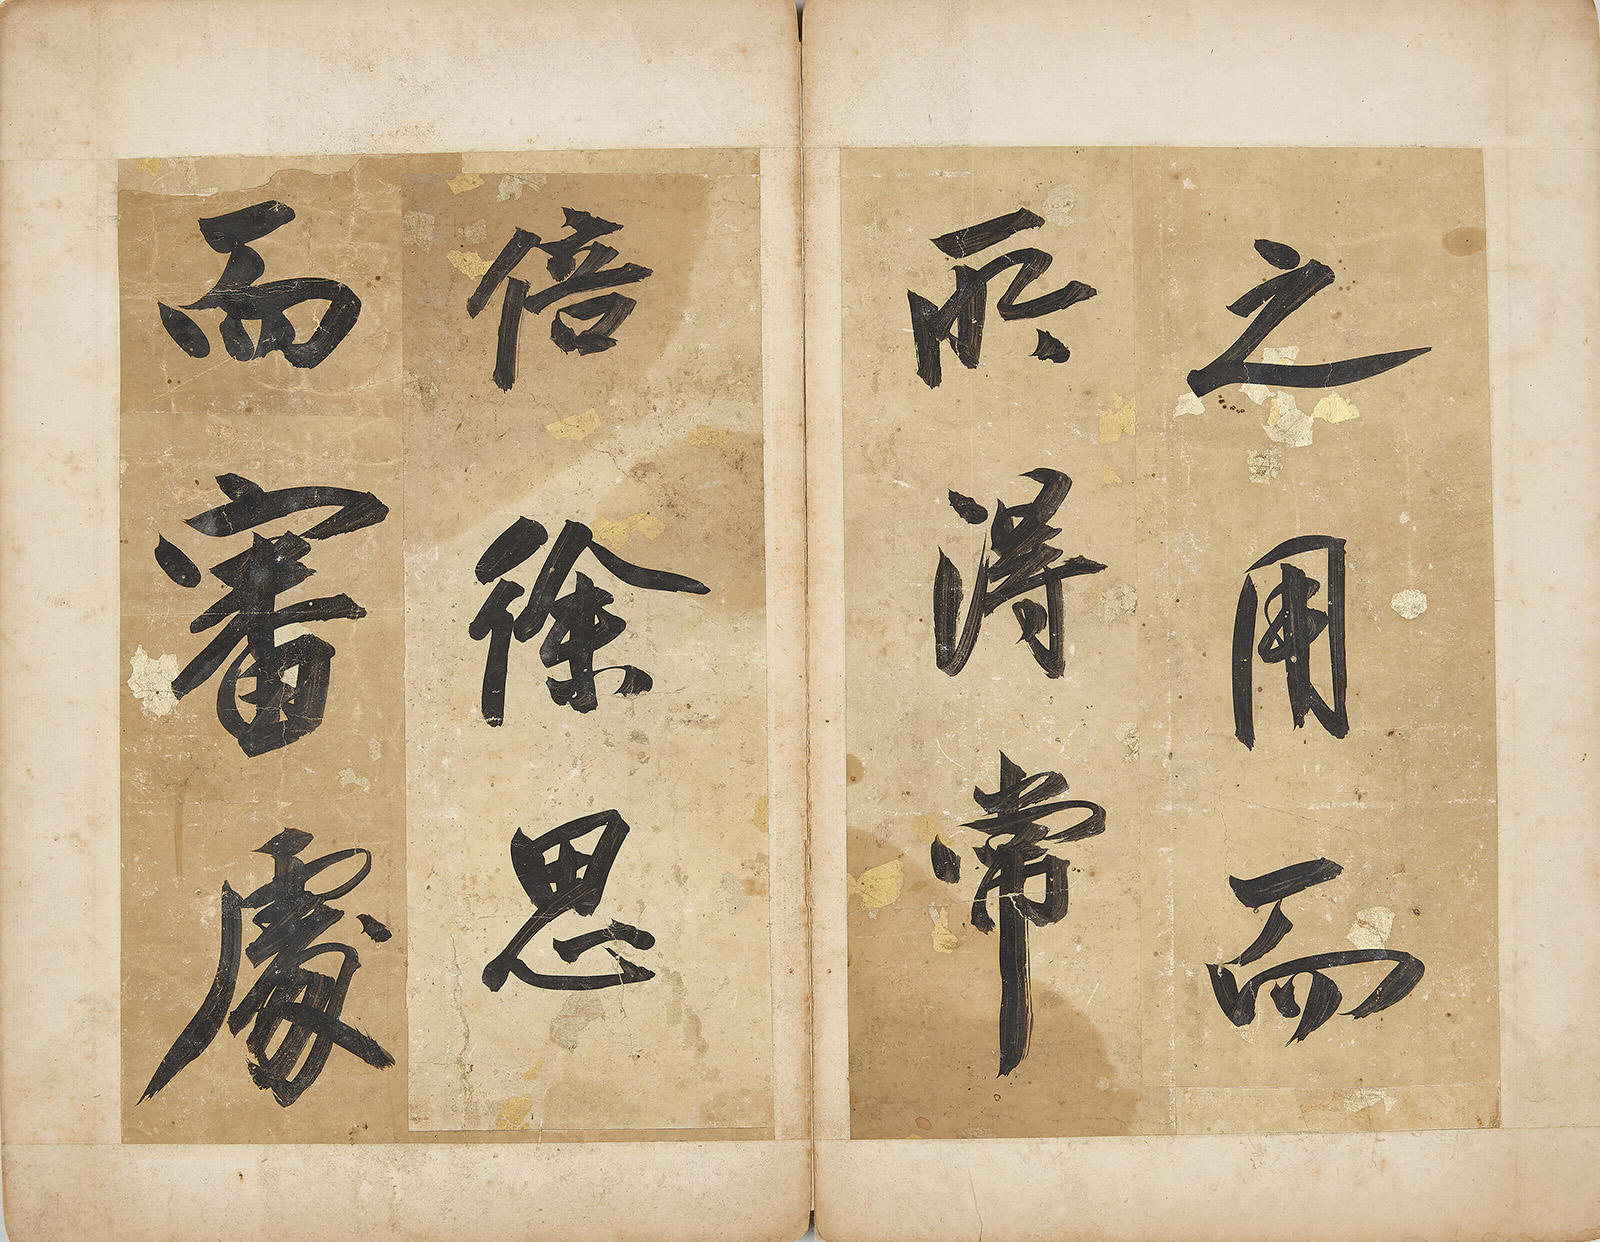 之用而
所得常
倍徐思
而審處